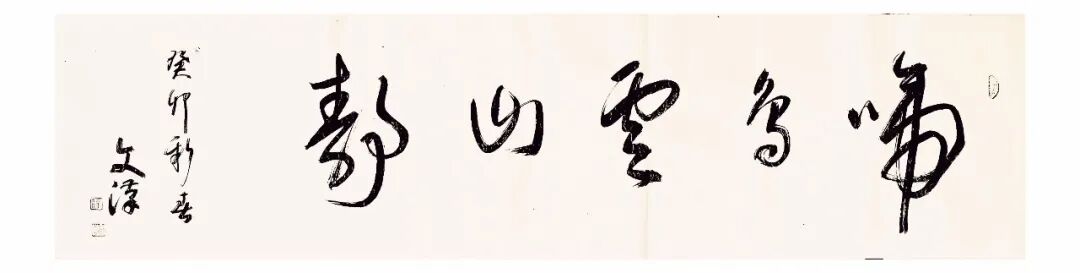 啼鳥雲山靜
癸卯新春
文漢